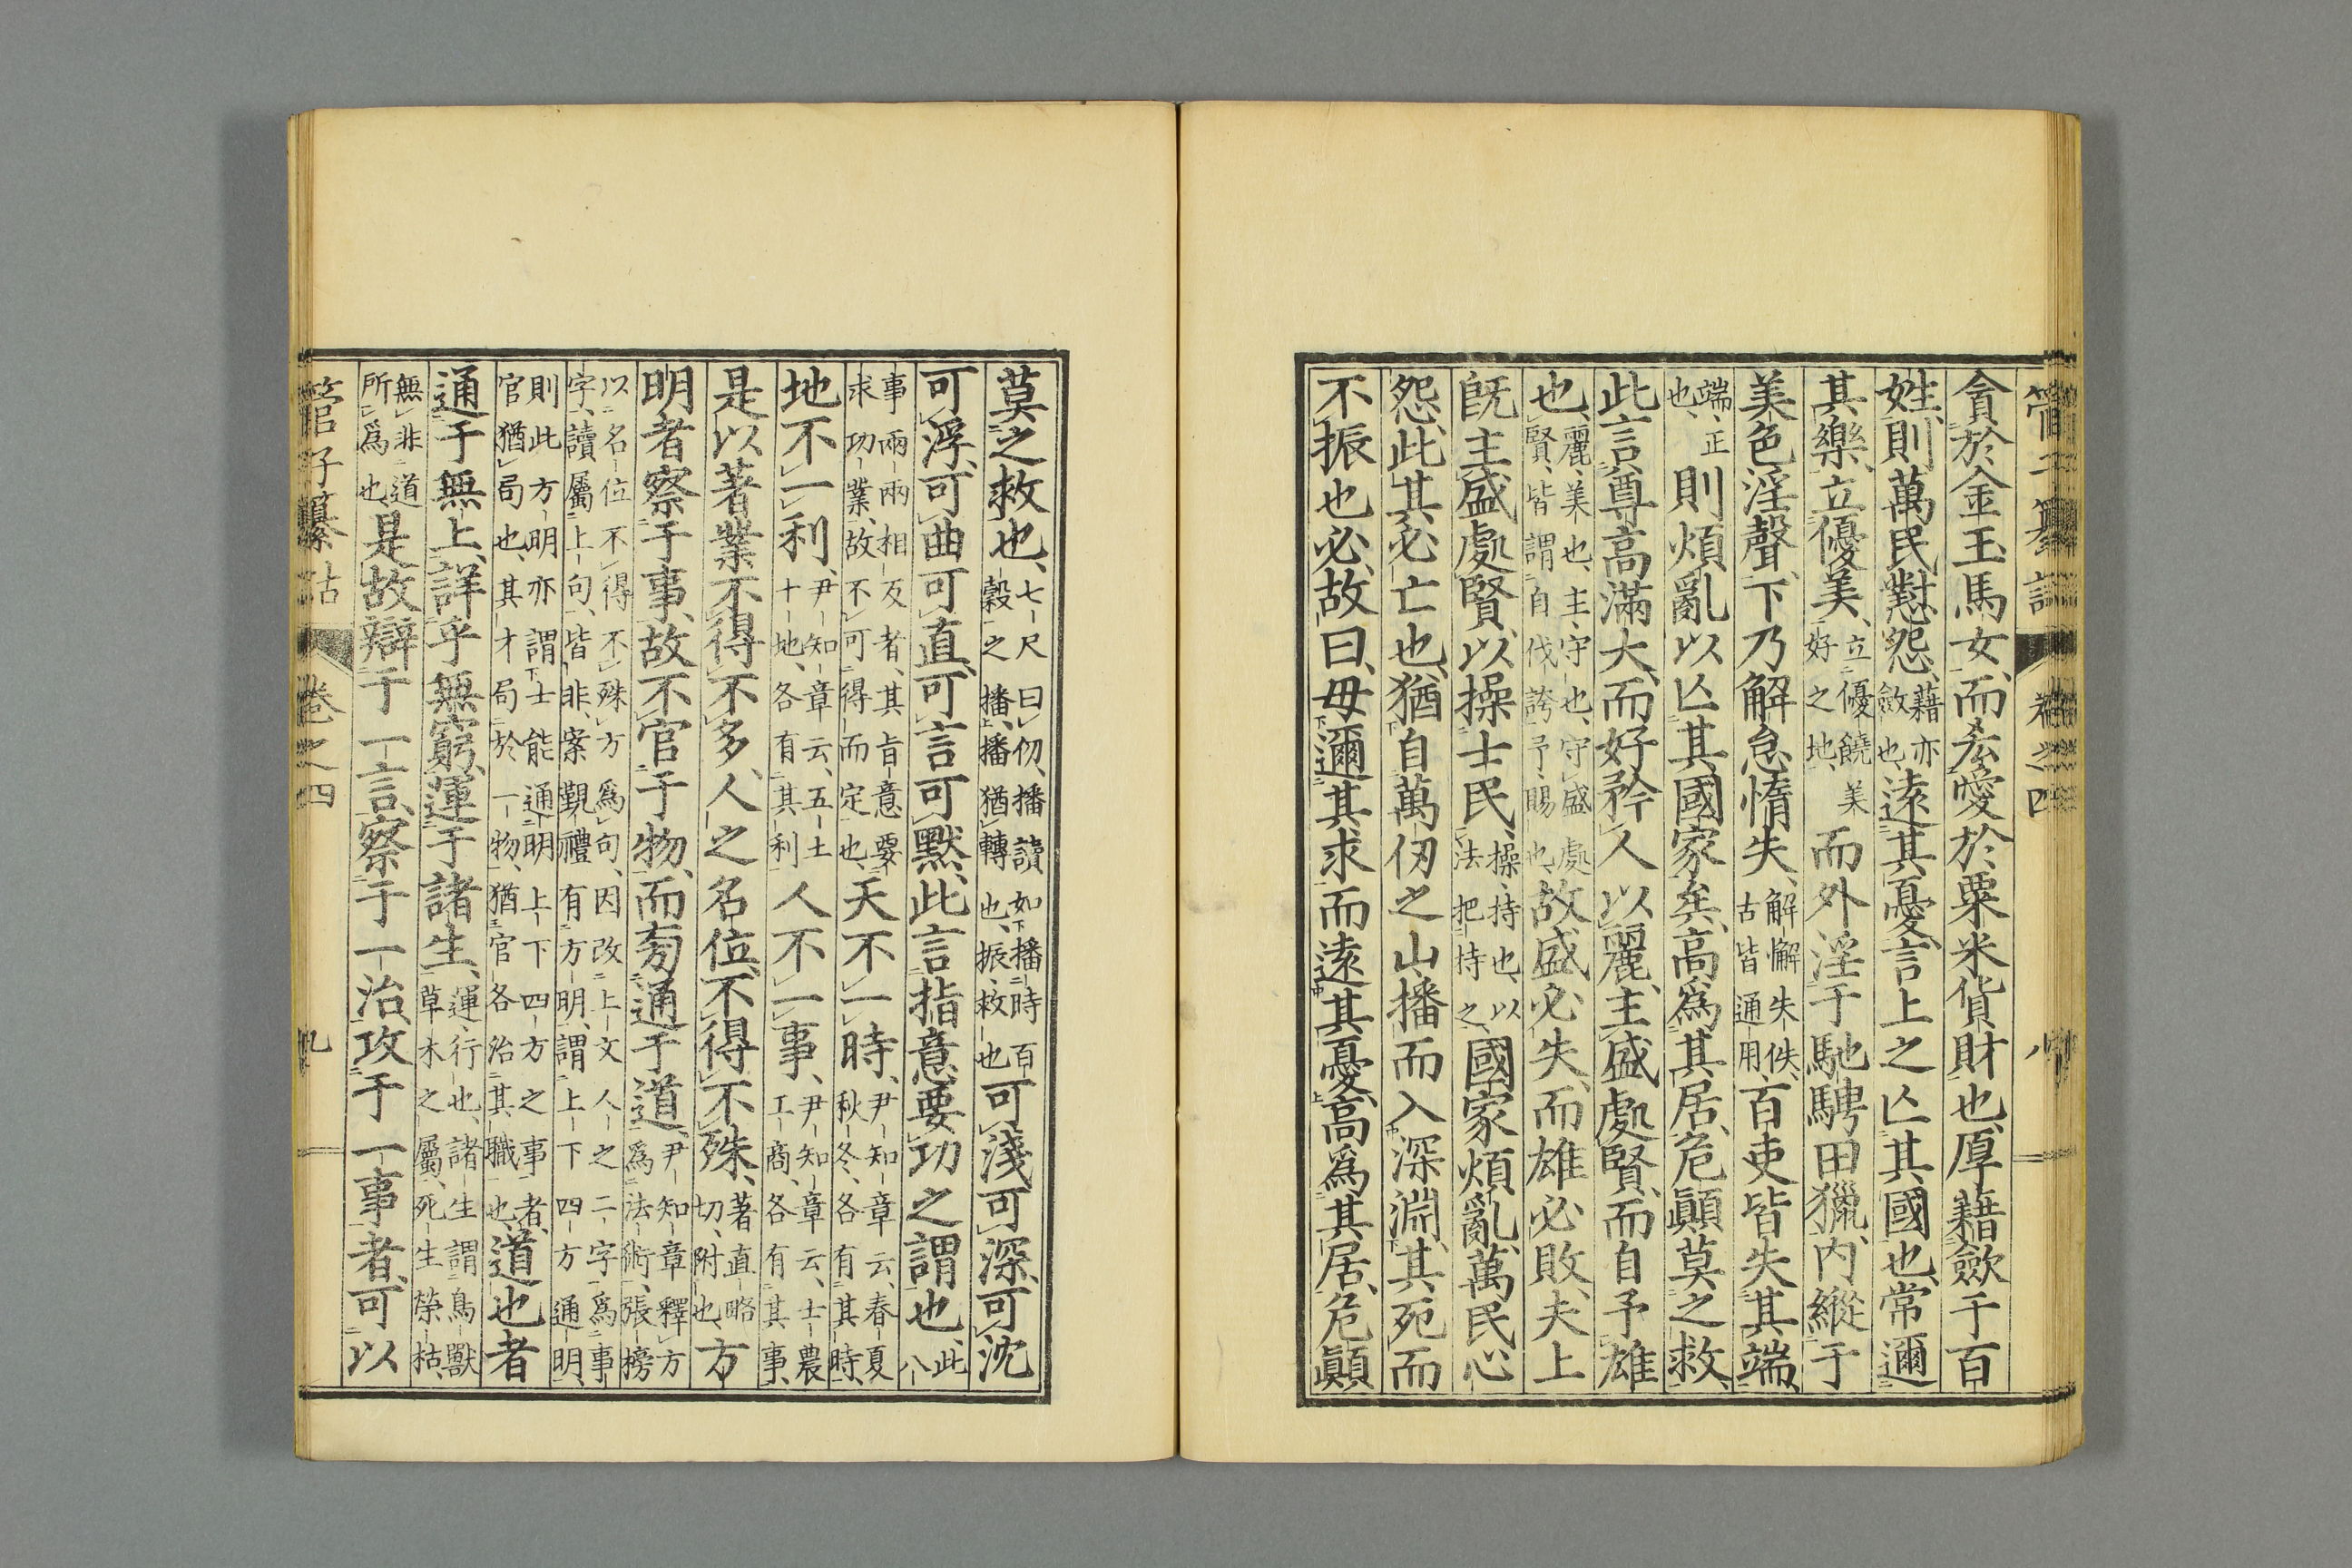 管子纂詁 卷之四 八
貪於金玉馬女、而㳒愛於粟米貨財也、厚藉歛于百
姓、則萬民懟怨、藉亦斂也、遠其憂、言上之亾其國也、常邇
其樂、立優美、立優饒美好之地、而外淫于馳騁田獵、內縱于
美色淫聲、下乃解怠惰失、解懈失佚、古皆通用、百吏皆失其端、
端、正也、則煩亂以亾其國家矣、高爲其居、危顚莫之救、
此言尊高滿大、而好矜人以麗、主盛處賢、而自予雄
也、麗、美也、主、守也、守盛處賢、皆謂自伐誇予、賜也、故盛必失、而雄必敗、夫上
旣主盛處賢、以操士民、操、持也、以法把持之、國家煩亂、萬民心
怨、此其必亡也、猶自萬仞之山、播而入深淵、其死而
不振也必、故曰、毋邇其求、而遠其憂、高爲其居、危顚
莫之救也、七尺曰仞、播讀如播時百穀之播、播猶轉也、振、救也、可淺可深、可沈
可浮、可曲可直、可言可默、此言指意要功之謂也、此八
事兩兩相反者、其旨意要求功業、故不可得而定也、天不一時、尹知章云、春夏秋冬、各有其時、
地不一利、尹知章云、五土十地、各有其利、人不一事、尹知章云、士農工商、各有其事、
是以著業不得不多、人之名位、不得不殊、著直略切、附也、方
明者察于事、故不官于物、而㫄通于道、尹知章釋方爲法術、張榜
以名位不得不殊方爲句、因改上文人之二字爲事字、讀屬上句、皆非、案覲禮有方明、謂上下四方通明、
則此方明亦謂士能通明上下四方之事者、官猶局也、其才局於一物、猶官各治其職也、道也者
通于無上、詳乎無窮、運于諸生、運、行也、諸生謂鳥獸草木之屬、死生榮枯、
無非道所爲也、是故辯于一言、察于一治、攻于一事者、可以
管子纂詁 卷之四 九